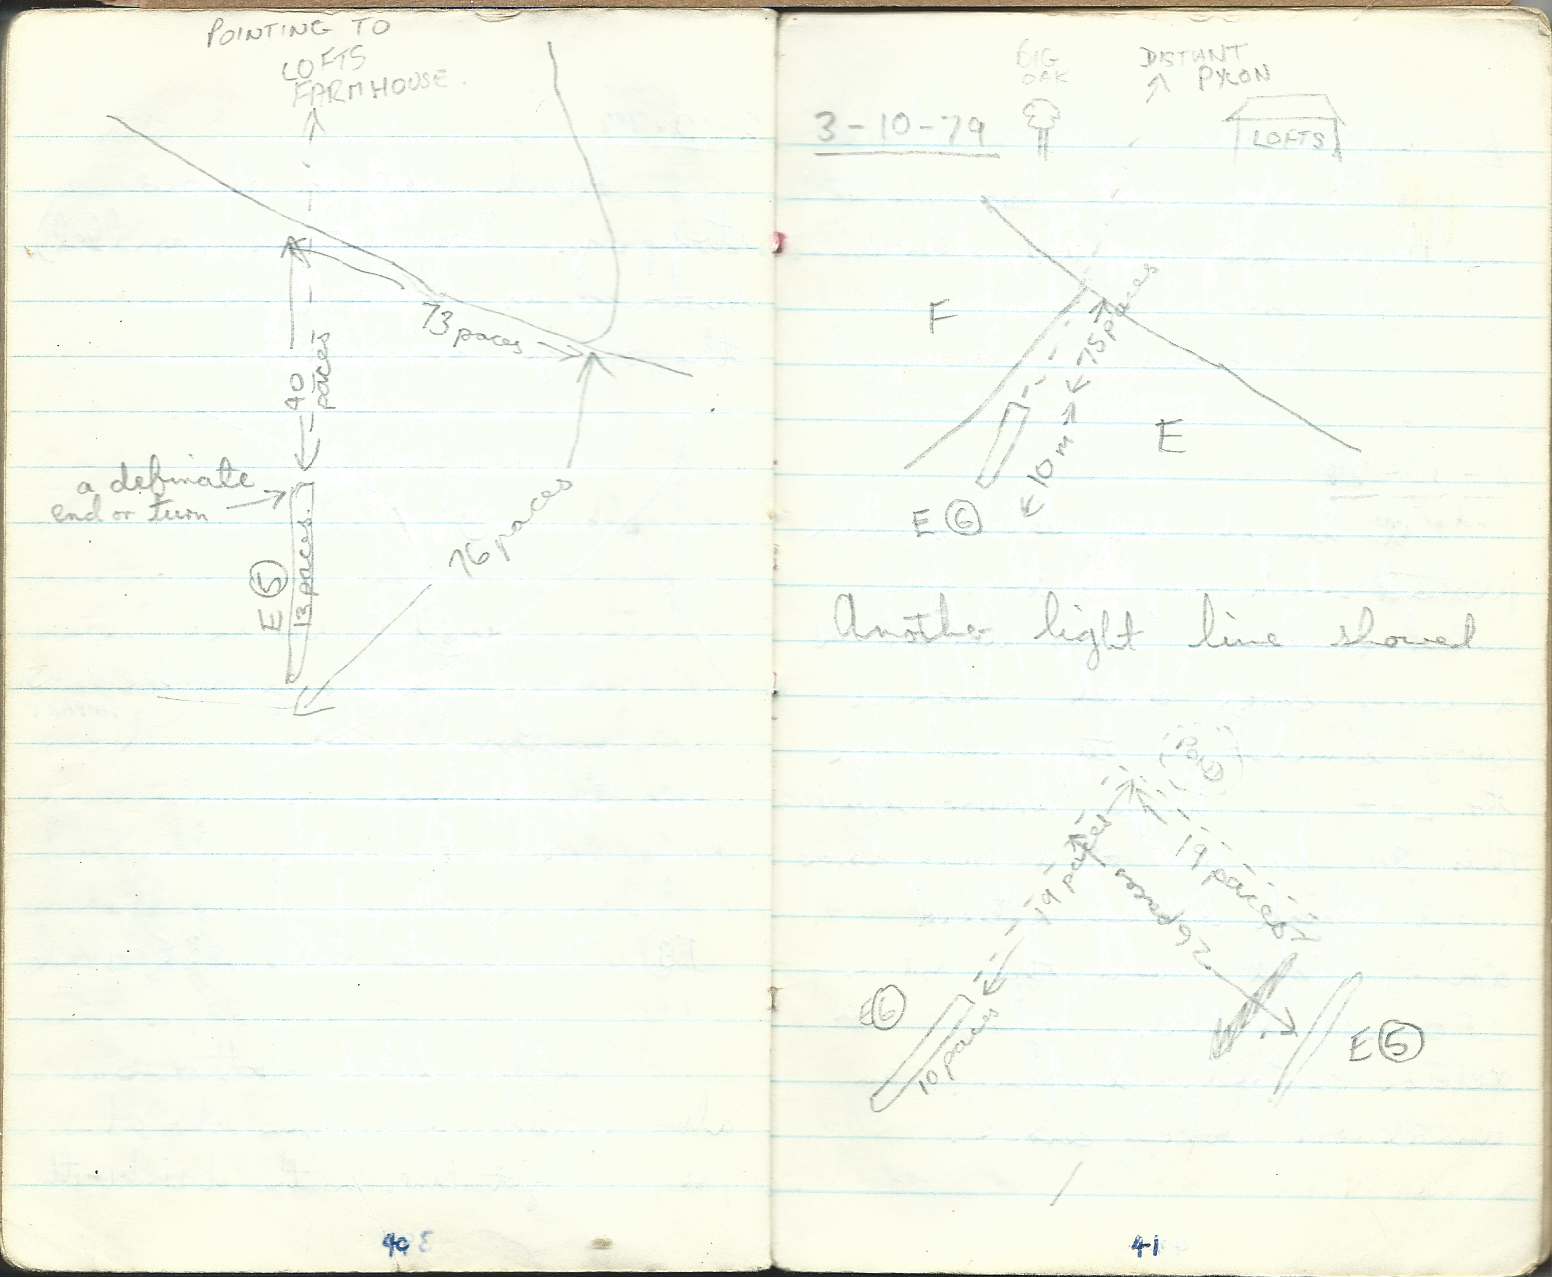 POINTING TO
LOFTS
FARMHOUSE.
73 paces
40
paces
a definate
end or turn
76 paces
E 5
13 paces.
40
BIG
OAK
DISTANT
PYLON
3-10-79
LOFTS
F
75 paces
E
10m
E 6
Another light line showed
POND
19 paces
19 paces
26 paces
E6
10 paces
E 5
41